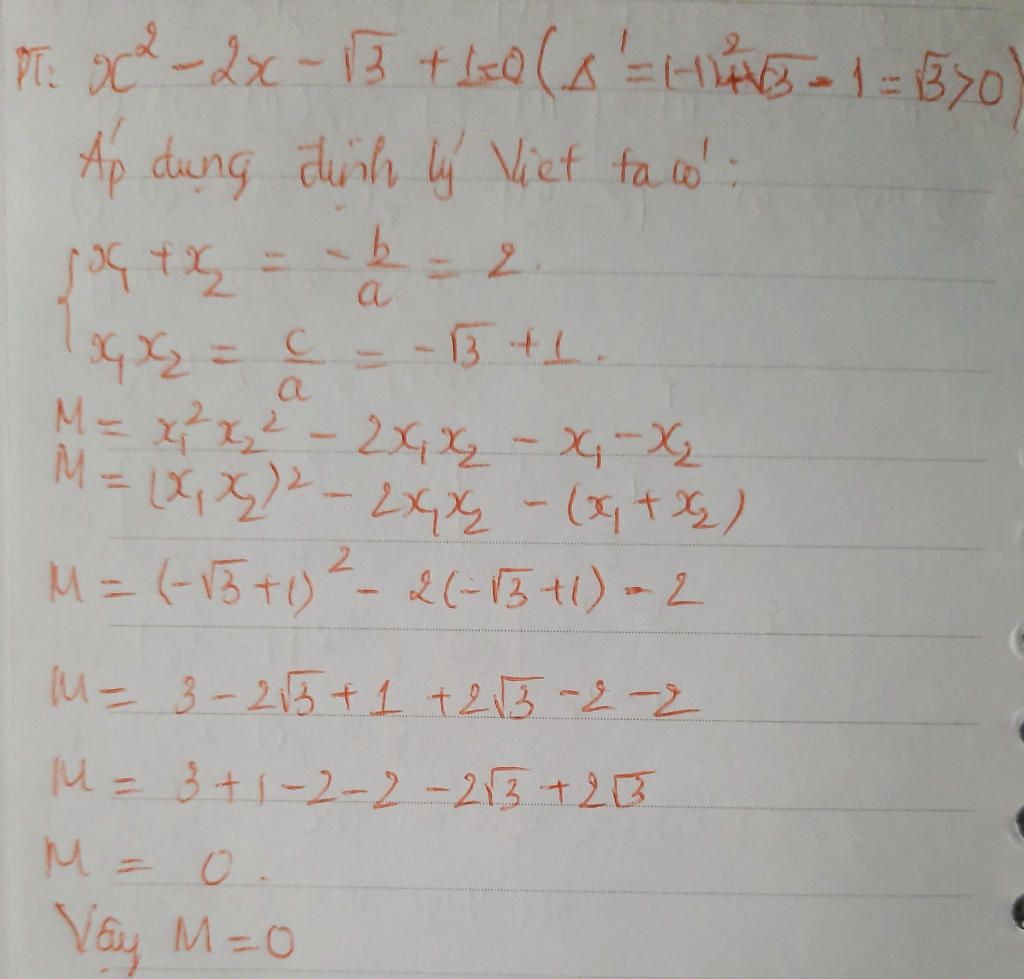 PT: x² - 2x - √3 + 1 = 0 (Δ' = (-1)² + √3 - 1 = √3 > 0)
Áp dụng định lý Viet ta có:
{ x₁ + x₂ = - b/a = 2.
x₁x₂ = c/a = -√3 + 1.
M = x₁²x₂² - 2x₁x₂ - x₁ - x₂
M = (x₁x₂)² - 2x₁x₂ - (x₁ + x₂)
M = (-√3 + 1)² - 2(-√3 + 1) - 2
M = 3 - 2√3 + 1 + 2√3 - 2 - 2
M = 3 + 1 - 2 - 2 - 2√3 + 2√3
M = 0.
Vậy M = 0